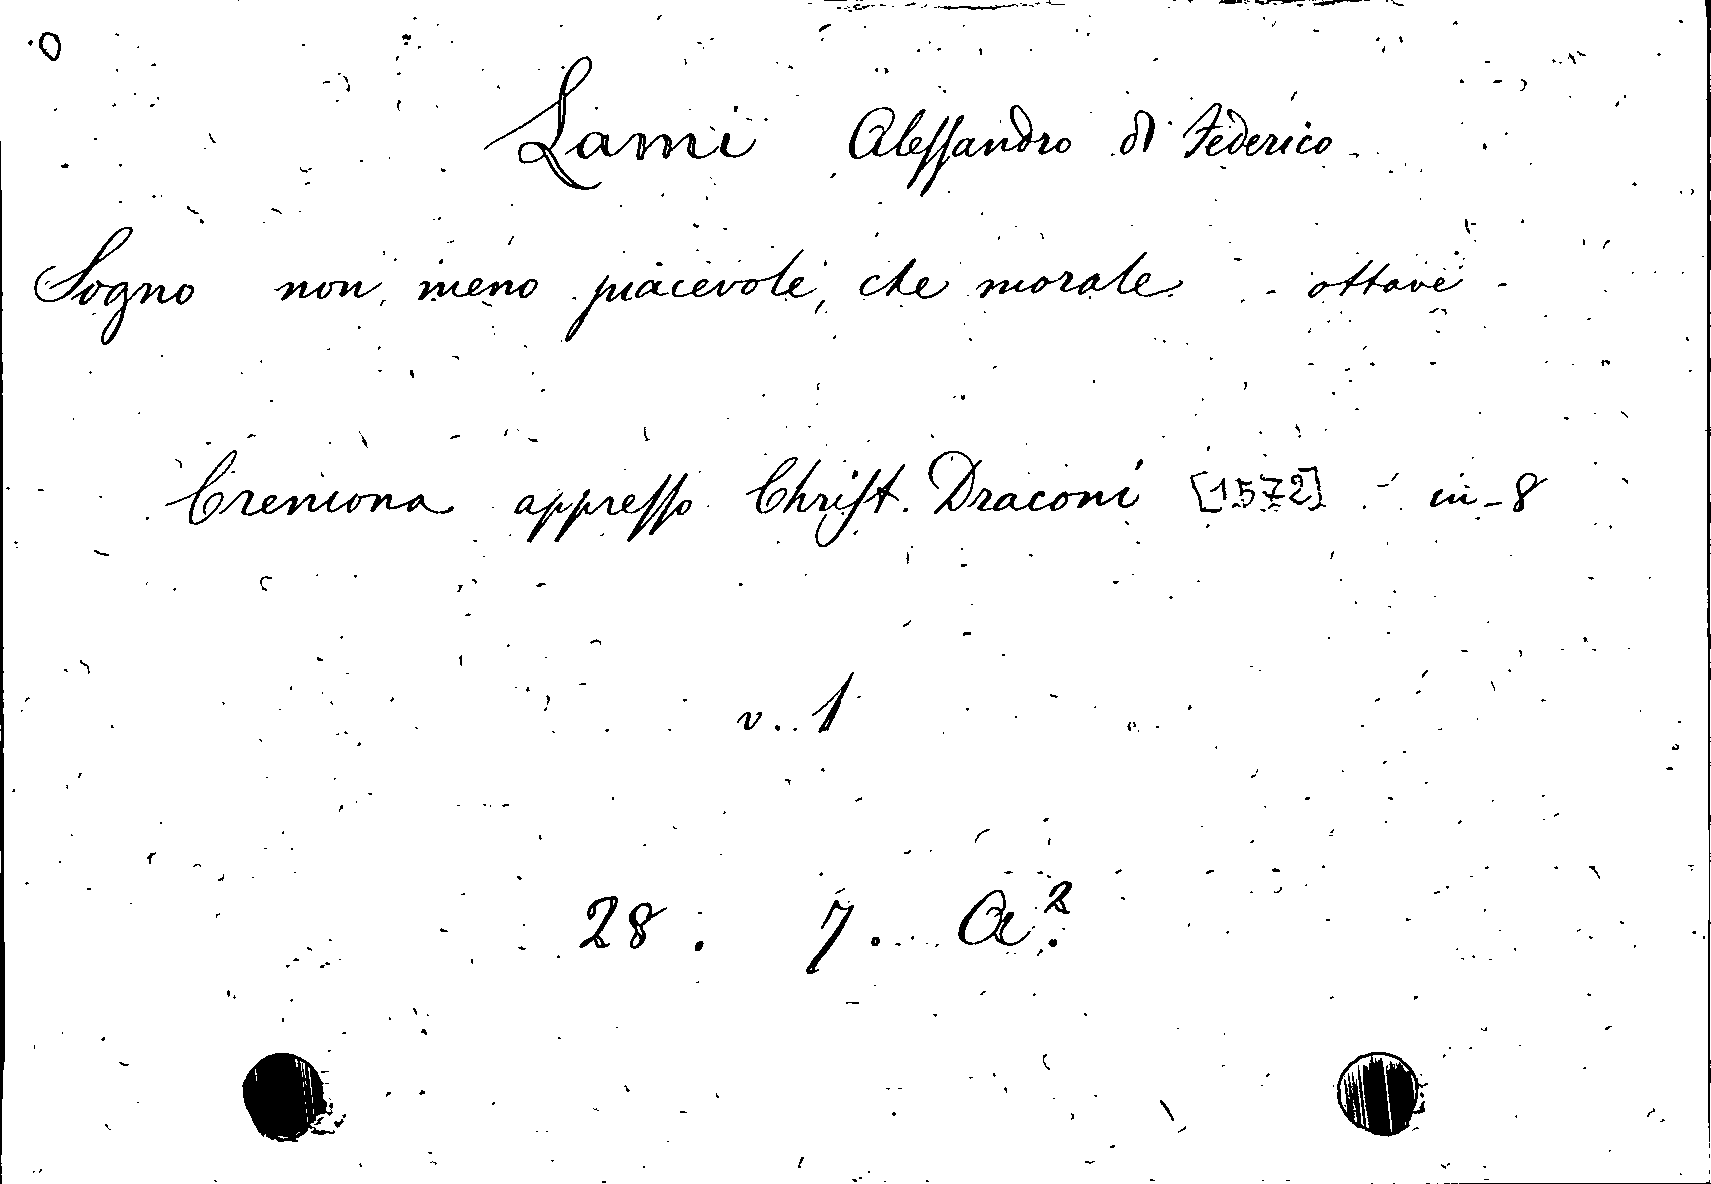 Lami Alessandro di Federico
Sogno non meno piacevole, che morale - ottave -
Cremona appresso Christ. Draconi [1572] - in-8
v. 1
28. 7. A².